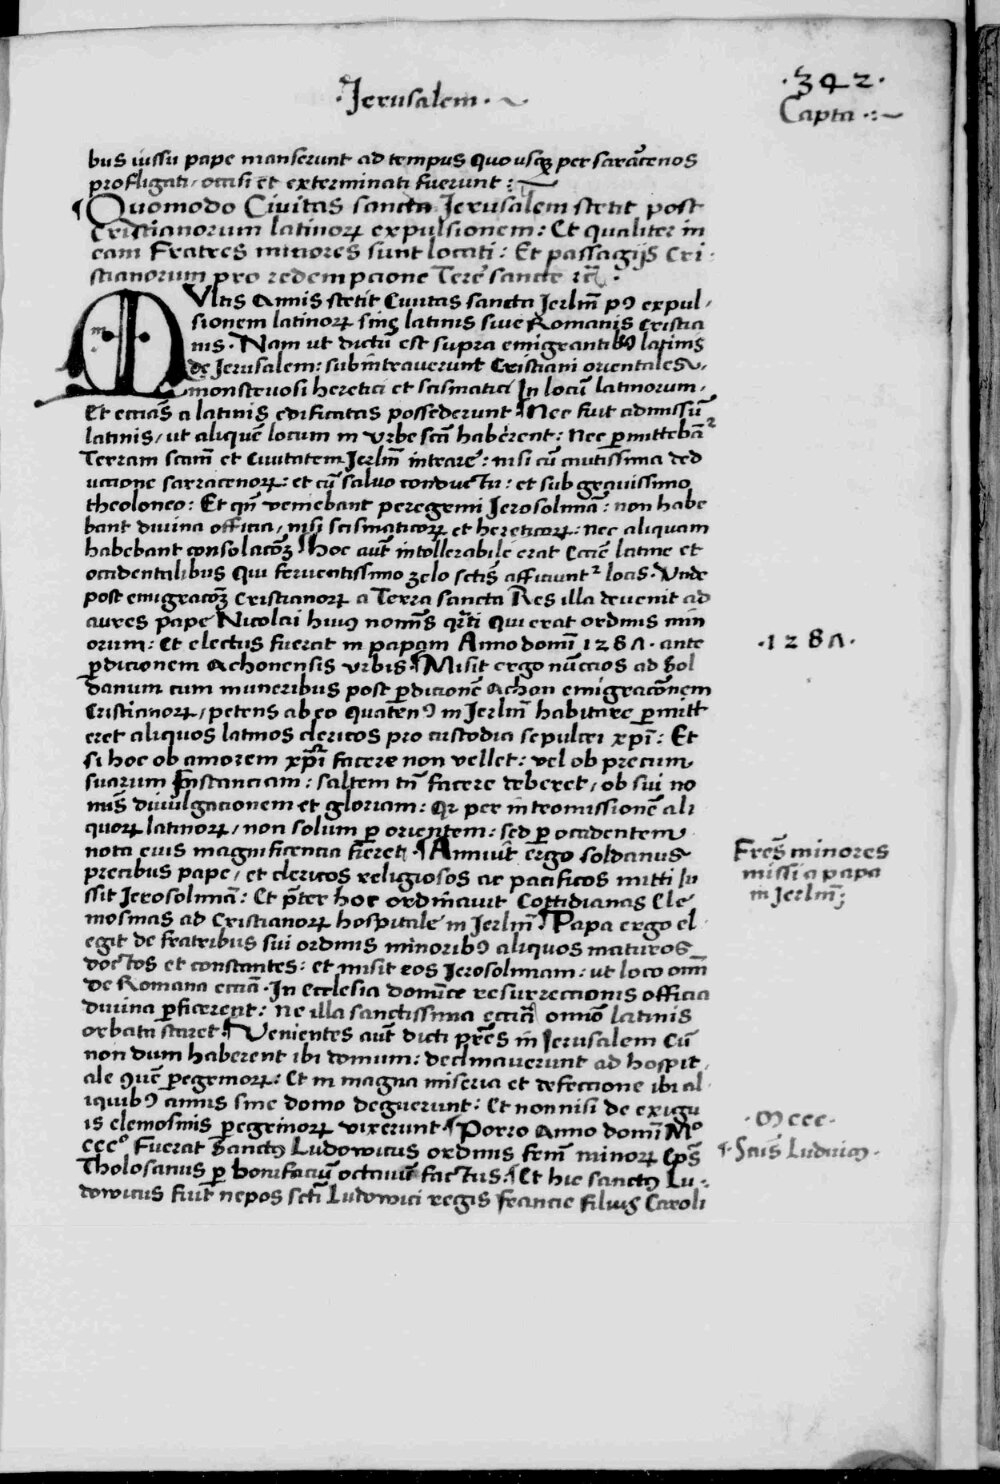 ·342·
·Jerusalem·
Capta
bus iussu pape manserunt ad tempus quo usq3 per saracenos
profligati, occisi et exterminati fuerunt:
¶Quomodo Civitas sancta Jerusalem stetit post
cristianorum latinorꝝ expulsionem: Et qualiter in
eam Fratres minores sunt locati: Et passagijs Cri-
stianorum pro redempcione Tere sancte
MUltis Annis stetit Civitas sancta Jerlm̄ pꝰ expul-
sionem latinorꝝ sine latinis sive Romanis Cristia
nis. Nam ut dictū est supra emigrantibꝰ latinis
de Jerusalem: subintraverunt Cristiani orientales,
monstruosi heretici et scismatici In locū latinorum,
Et ecciās a latinis edificatas possederunt ¶Nec fuit admissū
latinis, ut aliquē locum in urbe scā haberent: nec ꝑmittebāt
Terram scam̄ et Civitatem Jerlm̄ intrare: nisi cū cautissima ded
uctione sarracenorꝝ: et cū salvo conductu: et sub gravissimo
theoloneo: Et qn̄ veniebant peregrini Jerosolimā: non habe
bant divina officia, nisi scismaticorꝝ et hereticorꝝ: nec aliquam
habebant consolacōꝫ ¶hoc aut̄ intollerabile erat Eccīe latine et
occidentalibus qui ferventissimo zelo sctis̄ afficiunt² locis. Unde
post emigracōꝫ cristianorꝝ a Terra sancta Res illa devenit ad
aures pape Nicolai huiꝰ nomīs qrti Qui erat ordinis min
orum: Et electus fuerat in papam Anno domī 1287. ante
ꝑdicionem Achonensis urbis. ¶Misit ergo nūccios ad Sol
danum cum muneribus post ꝑdicionē Achon emigracōnem
Cristianorꝝ, petens ab eo quatenꝰ in Jerlm̄ habitare ꝑmitt
eret aliquos latinos clericos pro custodia sepulcri xp̄i: Et
si hoc ob amorem xp̄i facere non vellet: vel ob precum
suarum Instanciam: saltem tn̄ facere deberet, ob sui no
mīs divulgacionem et gloriam: Qr per intromissionē ali
quorꝝ latinorꝝ, non solum ꝑ orientem: sed ꝑ occidentem
nota eius magnificencia fieret. ¶Annuit ergo soldanus
precibus pape, et clericos religiosos ac pacificos mitti iu
ssit Jerosolimā: Et p̄ter hoc ordinavit Cottidianas Ele
mosinas ad Cristianorꝝ hospitale in Jerlm̄. ¶Papa ergo el
egit de fratribus sui ordinis minoribꝰ aliquos maturos
doctos et constantes: et misit eos Jerosolimam: ut loco
de Romana ecciā. In ecclesia dominice resurrectionis officia
divina ꝑficerent: ne illa sanctissima ecciā omīo latinis
orbata staret. ¶Venientes aut̄ dicti pr̄es in Jerusalem Cū
non dum haberent ibi domum: declinaverunt ad hospit
ale ꝑegrinorꝝ: Et in magna miseria et defectione ibi al-
iquibꝰ annis sine domo deguerunt: Et non nisi de exigu
is elemosinis ꝑegrinorꝝ vixerunt. ¶Porro Anno domī Mº
cccº fuerat Sanctꝰ Ludowicus ordinis frm̄ minorꝝ Ep̄s
Tholosanus ꝑ bonifaciū octavū factus. ¶Et hic sanctꝰ Lu-
dowicus fuit nepos scti Ludowici regis francie filius Caroli
·1287·
Fres̄ minores
missi a papa
in Jerlm̄;
·Mccc·
¶·Sctūs Ludivicꝰ·